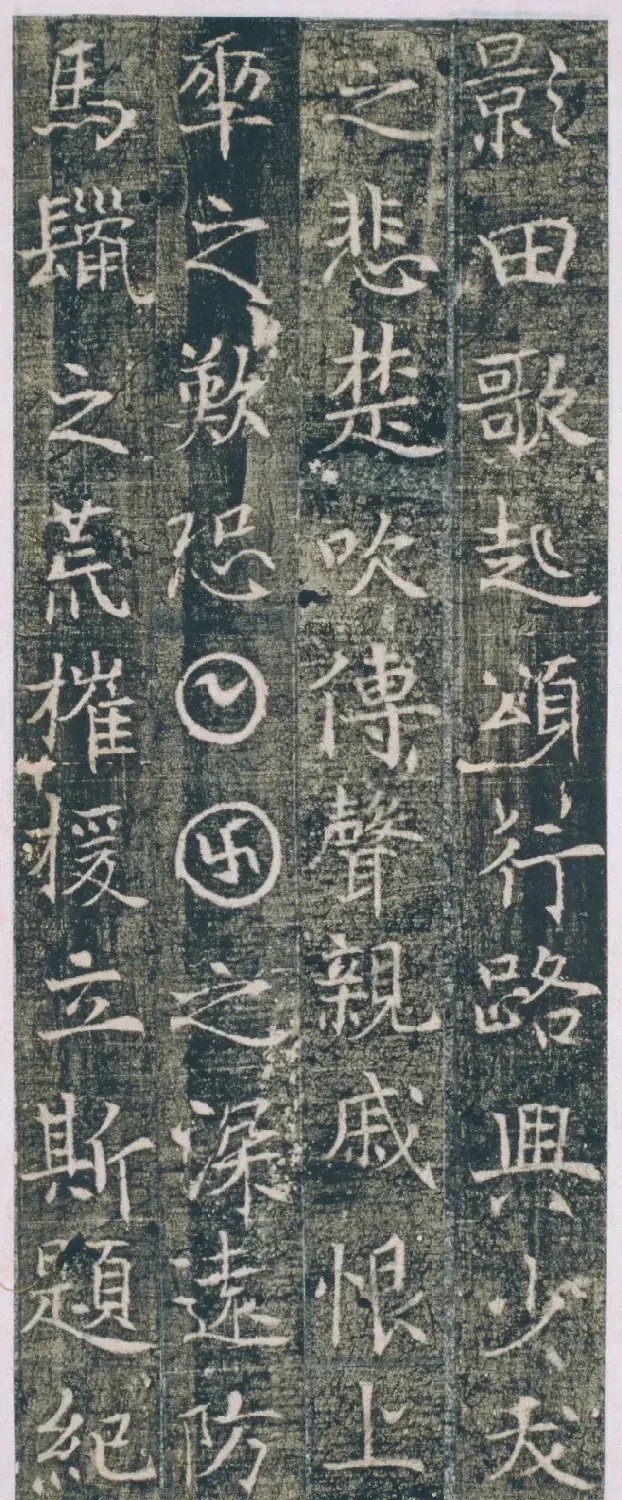 影田歌起頌行路興少
之悲楚吹傳聲親戚恨上
之歎恐𡆠卍之深遠防
馬鬣之荒摧援立斯題紀